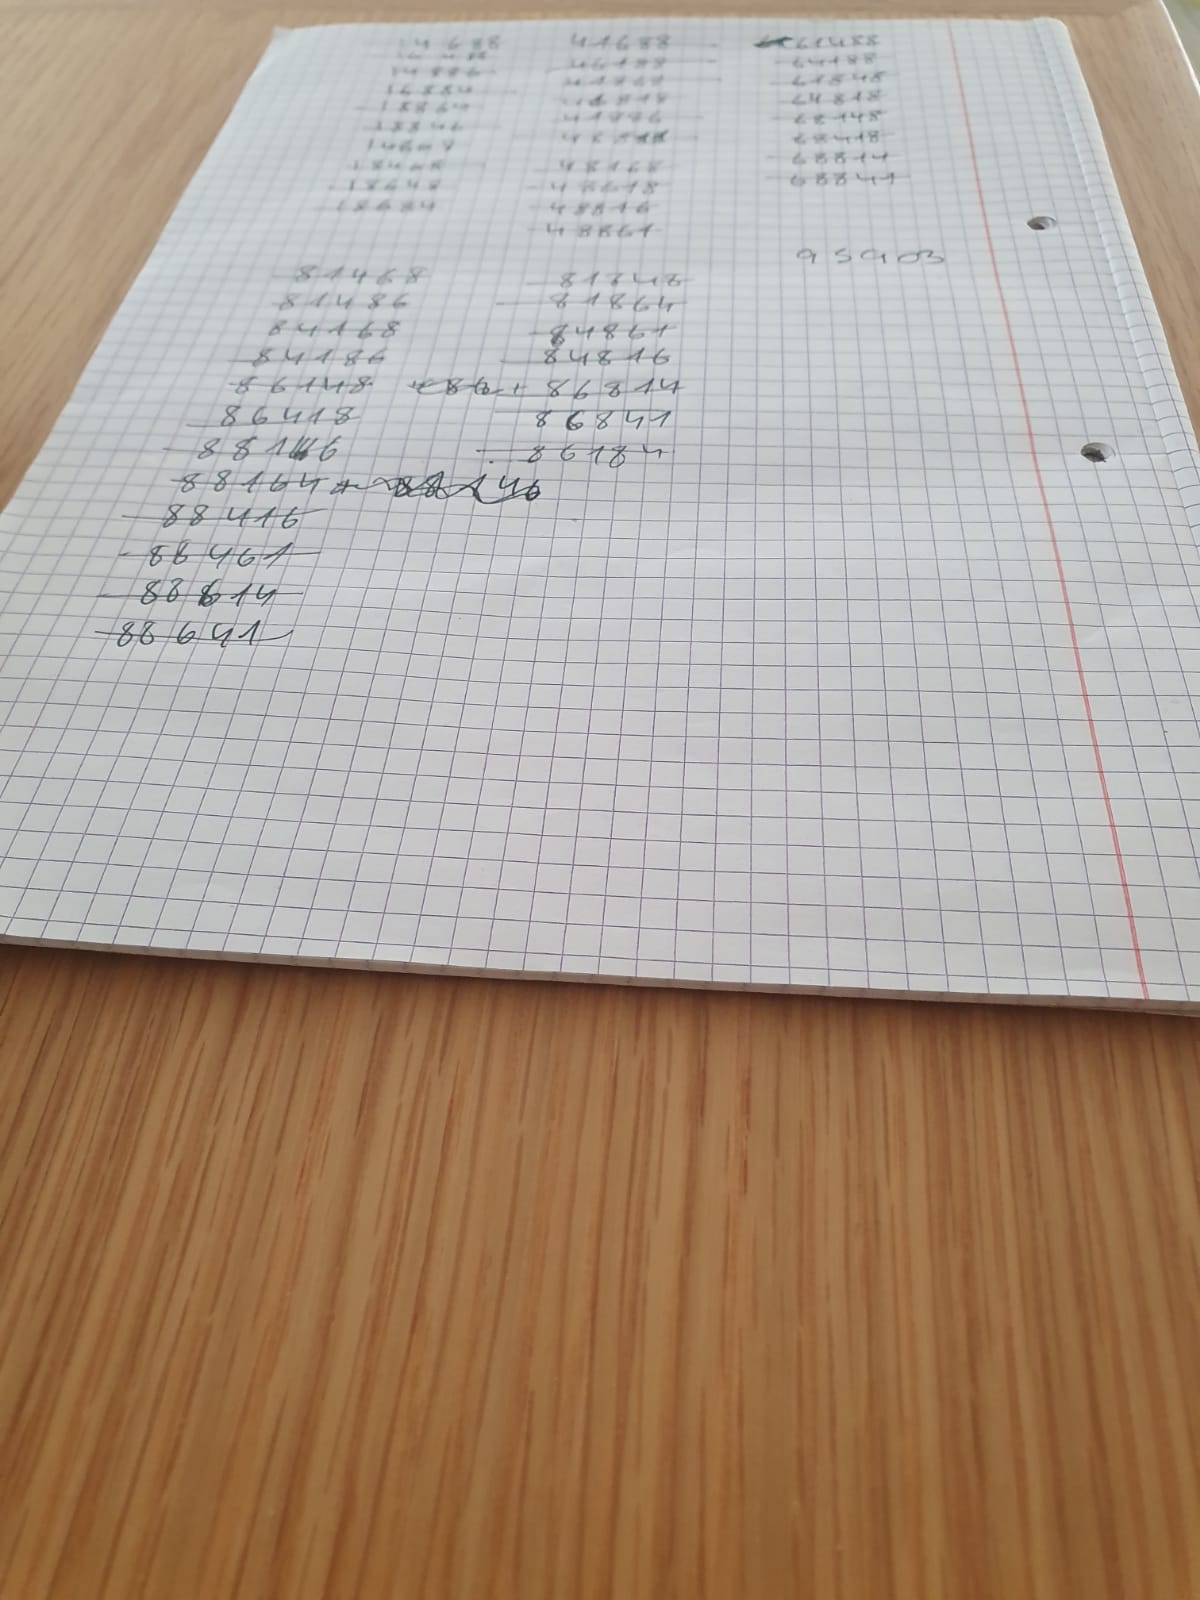 14688
14886
16884
18864
18846
18468
18648
18684
41688
46188
41868
46818
41886
48168
48618
48816
48861
61488
64188
61848
64818
68148
68418
68814
68841
95903
81468
81486
84168
84186
86148
86418
88146
88164
88416
88461
88614
88641
81848
81864
84861
84816
86814
86841
86184